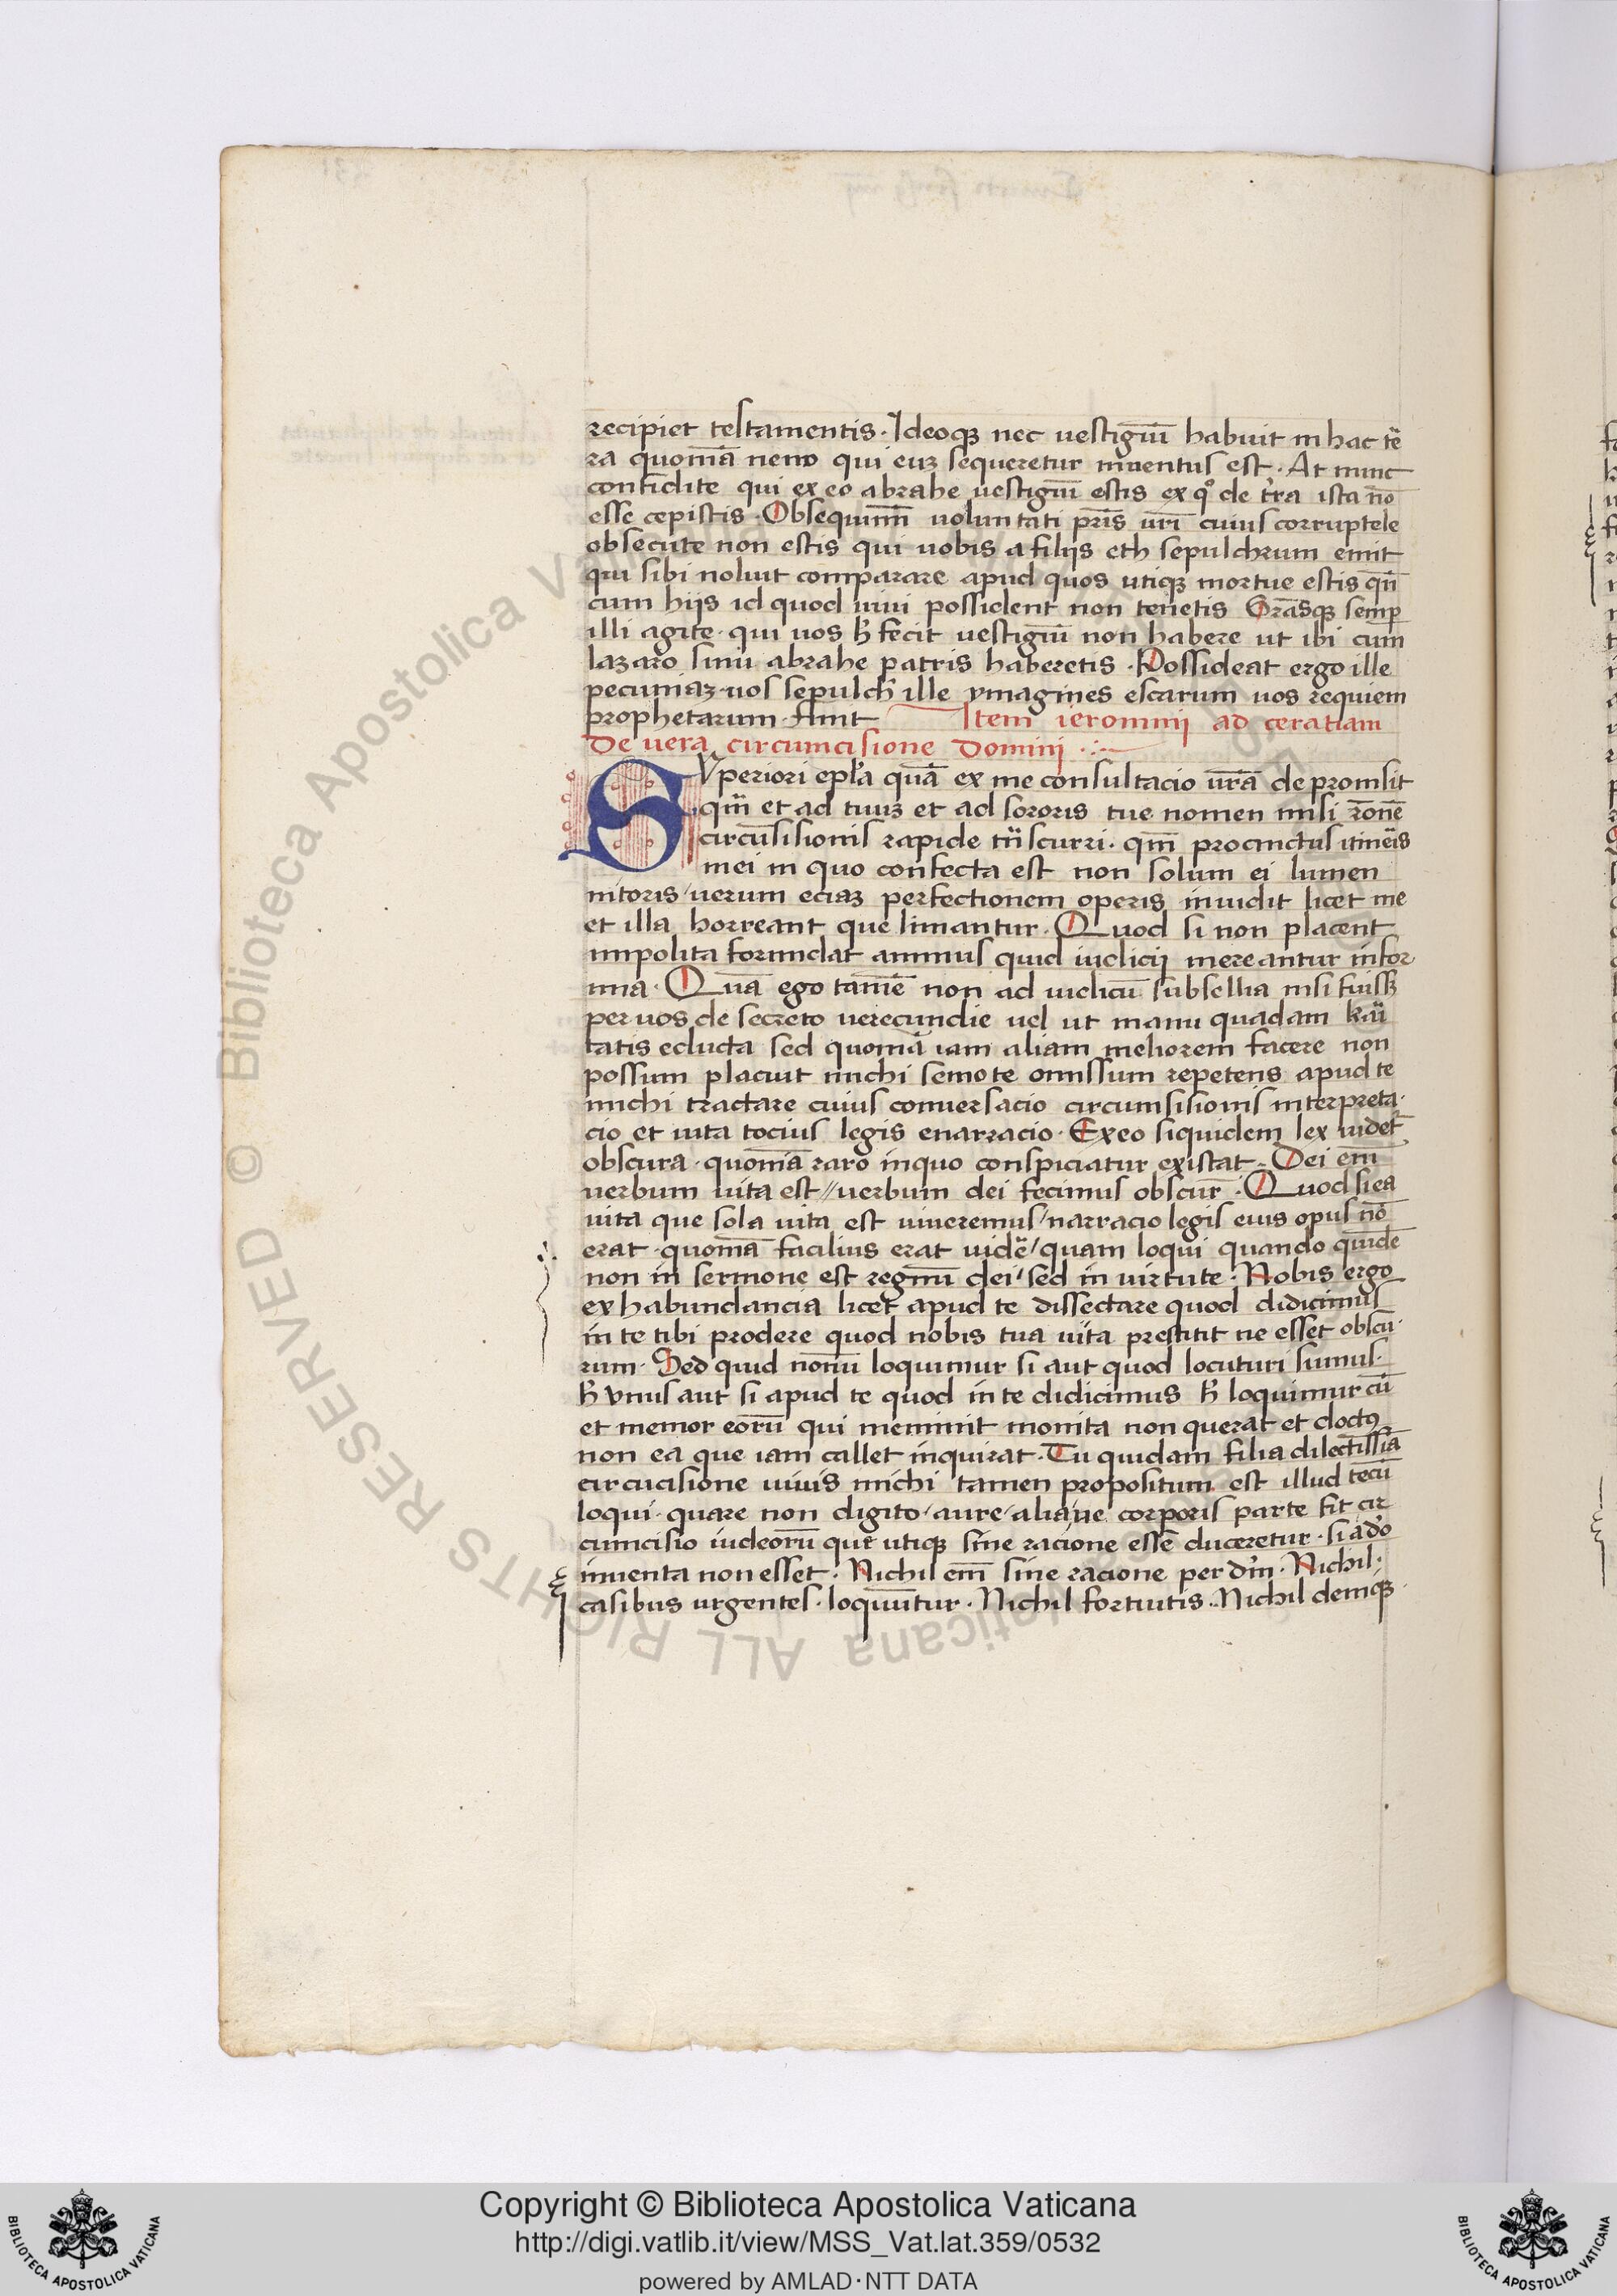 recipiet testamentis. Ideoqꝫ nec uestigiū habuit in hac t̄e
ra quoniā nemo qui euꝫ sequeretur inuentus est. At nunc
confidite qui ex eo abrahe uestigiū estis ex qͦ de t̄ra ista nō
esse cepistis. Obsequimī uoluntati pr̄is ur̄i cuius corruptele
obsecute non estis qui uobis a filijs eth sepulchrum emit
qui sibi noluit comparare apud quos utiqꝫ mortue estis qn̄
cum hijs id quod uiui possident non tenetis Gr̄asqꝫ semp̄
illi agite. qui uos h̄ fecit uestigiū non habere ut ibi cum
lazaro sinū abrahe patris haberetis. Possideat ergo ille
pecuniaꝫ uos sepulch̄ ille ymagines escarum uos requiem
prophetarum. Finit Item ieronimi ad ceratiam
De uera circumcisione Domini
SVperiori epl̄a quā ex me consultacio ur̄a depromsit
qm̄ et ad tuuꝫ et ad sororis tue nomen misi rōnē
circūsisionis rapide t̄nscurri. qm̄ procinctus itin̄eis
mei in quo confecta est non solum ei lumen
nitoris/uerum eciaꝫ perfectionem operis inuidit licet me
et illa horreant que limantur. Quod si non placent
impolita formidat animus quid iudicij mereantur infor
mia. Quā ego tamē non ad iudicū subsellia misi fuissꝫ
per uos de secreto uerecundie uel ut manu quadam kar̄i
tatis educta sed quoniā iam aliam meliorem facere non
possum placuit michi semote omissum repetens apud te
michi tractare cuius conuersacio circumsisionis interpreta
cio et uita tocius legis enarracio. Ex eo siquidem lex uidet̄
obscura. quoniā raro in quo conspiciatur existat. Dei em̄
uerbum uita est//uerbum dei fecimus obscur̄. Quod si ea
uita que sola uita est uiueremus/narracio legis eius opus nō
erat. quoniā facilius erat uidē/quam loqui quando quidē
non in sermone est regnū dei/sed in uirtute. Nobis ergo
ex habundancia licet apud te dissectare quod didicimus
in te tibi prodere quod nobis tua uita prestitit ne esset obscu
rum. Sed quid nouū loquimur si aut quod locuturi sumus
h̄ vnus aut si apud te quod in te didicimus h̄ loquimur cū
et memor eorū qui meminit monita non querat et doctꝰ
non ea que iam callet inquirat. Tu quidam filia dilectissīa
circucisione uiuis michi tamen propositum est illud tecū
loqui. quare non digito/aure/aliaue corporis parte fit cir
cumcisio iudeorū que utiqꝫ sine racione esse duceretur. si a dō
inuenta non esset. Nichil em̄ sine racione per dm̄. Nichil
casibus urgentes. loquūtur. Nichil fortuitis. Nichil deniqꝫ
Copyright © Biblioteca Apostolica Vaticana
http://digi.vatlib.it/view/MSS_Vat.lat.359/0532
powered by AMLAD·NTT DATA